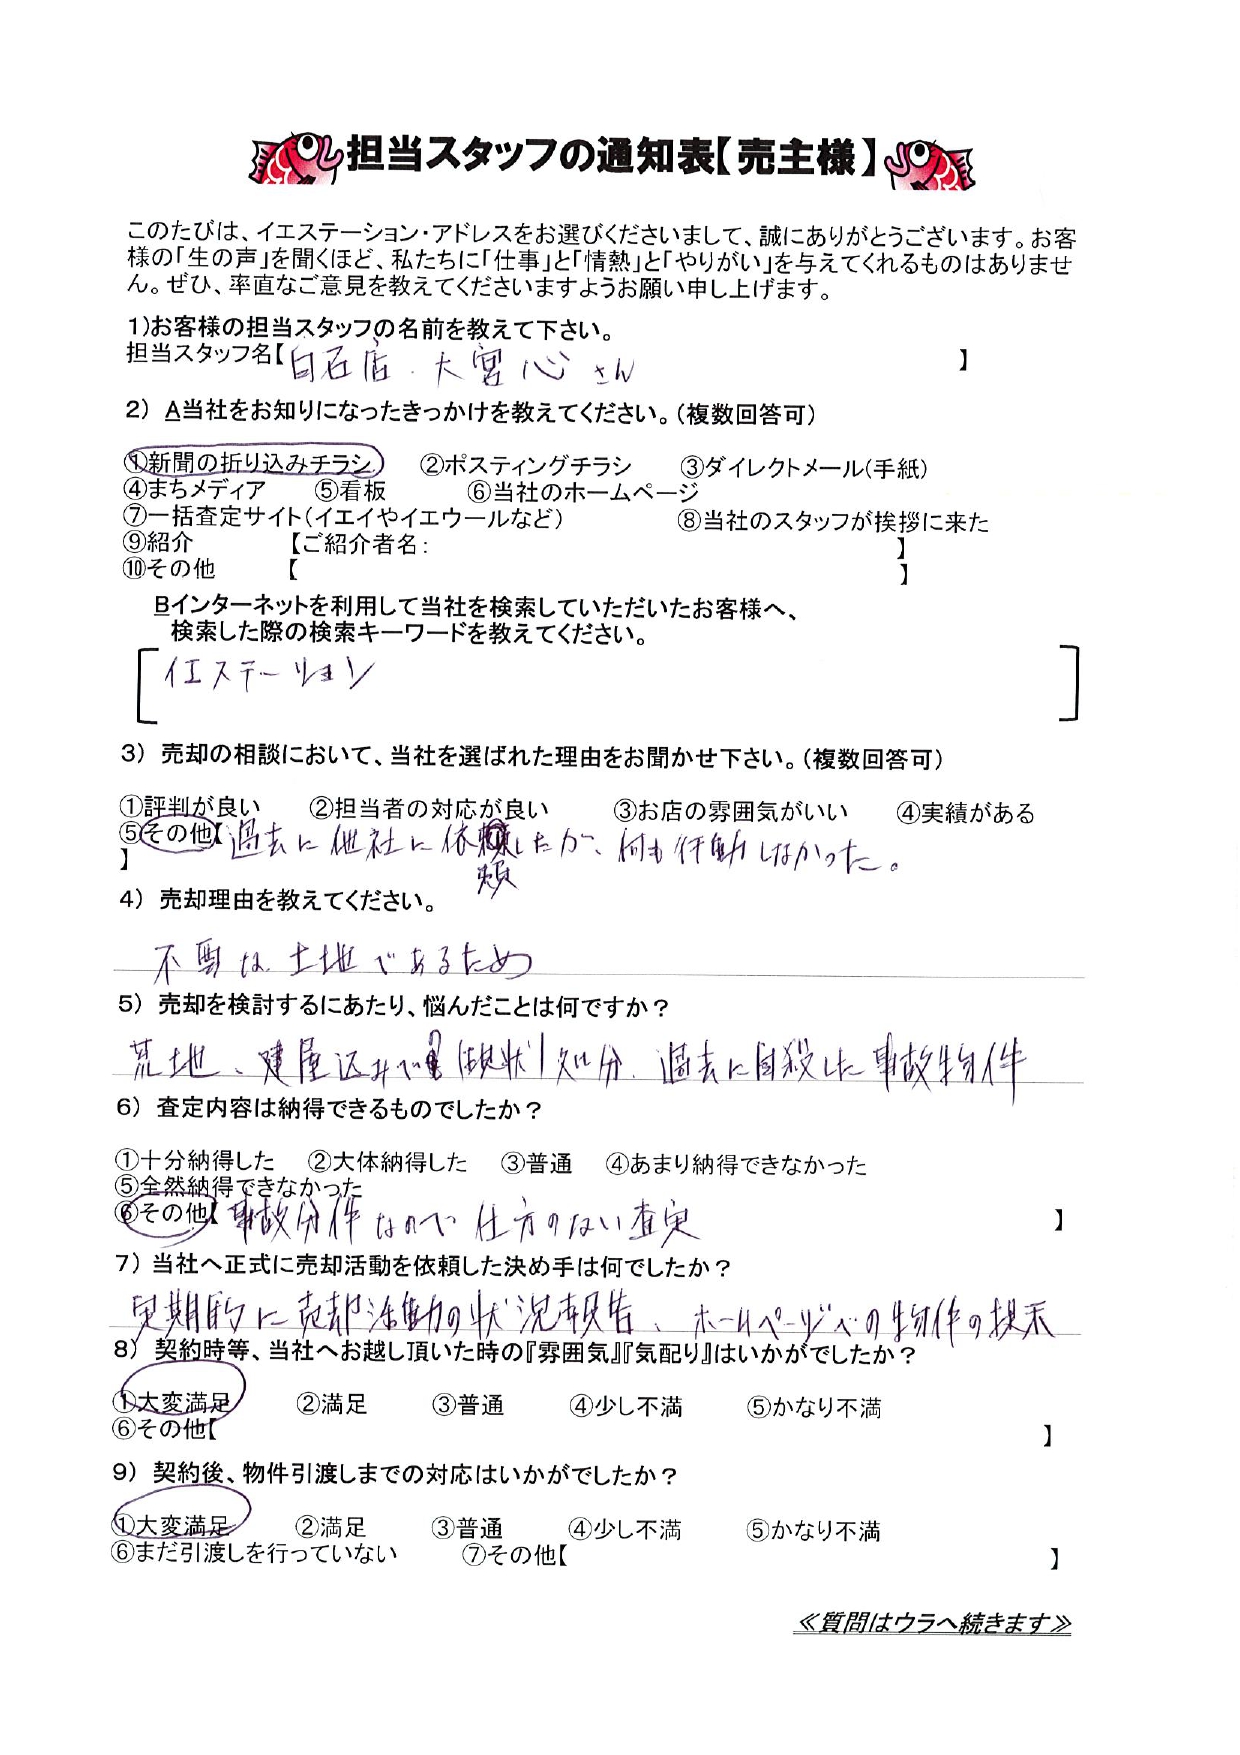 担当スタッフの通知表【売主様】
このたびは、イエステーション・アドレスをお選びくださいまして、誠にありがとうございます。お客
様の「生の声」を聞くほど、私たちに「仕事」と「情熱」と「やりがい」を与えてくれるものはありませ
ん。ぜひ、率直なご意見を教えてくださいますようお願い申し上げます。
1)お客様の担当スタッフの名前を教えて下さい。
担当スタッフ名【白石店 大宮心さん】
2) A当社をお知りになったきっかけを教えてください。(複数回答可)
①新聞の折り込みチラシ ②ポスティングチラシ ③ダイレクトメール(手紙)
④まちメディア ⑤看板 ⑥当社のホームページ
⑦一括査定サイト(イエイやイエウールなど) ⑧当社のスタッフが挨拶に来た
⑨紹介 【ご紹介者名: 】
⑩その他 【 】
Bインターネットを利用して当社を検索していただいたお客様へ、
検索した際の検索キーワードを教えてください。
[イエステーション]
3) 売却の相談において、当社を選ばれた理由をお聞かせ下さい。(複数回答可)
①評判が良い ②担当者の対応が良い ③お店の雰囲気がいい ④実績がある
⑤その他【過去に他社に依頼したが、何も行動しなかった。
】
4) 売却理由を教えてください。
不要な土地であるため
5) 売却を検討するにあたり、悩んだことは何ですか?
荒地、建屋込みで現状処分、過去に自殺した事故物件
6) 査定内容は納得できるものでしたか?
①十分納得した ②大体納得した ③普通 ④あまり納得できなかった
⑤全然納得できなかった
⑥その他【事故分件なので仕方のない査定】
7) 当社へ正式に売却活動を依頼した決め手は何でしたか?
定期的に売却活動の状況報告、ホームページへの物件の提示
8) 契約時等、当社へお越し頂いた時の『雰囲気』『気配り』はいかがでしたか?
①大変満足 ②満足 ③普通 ④少し不満 ⑤かなり不満
⑥その他【 】
9) 契約後、物件引渡しまでの対応はいかがでしたか?
①大変満足 ②満足 ③普通 ④少し不満 ⑤かなり不満
⑥まだ引渡しを行っていない ⑦その他【 】
≪質問はウラへ続きます≫